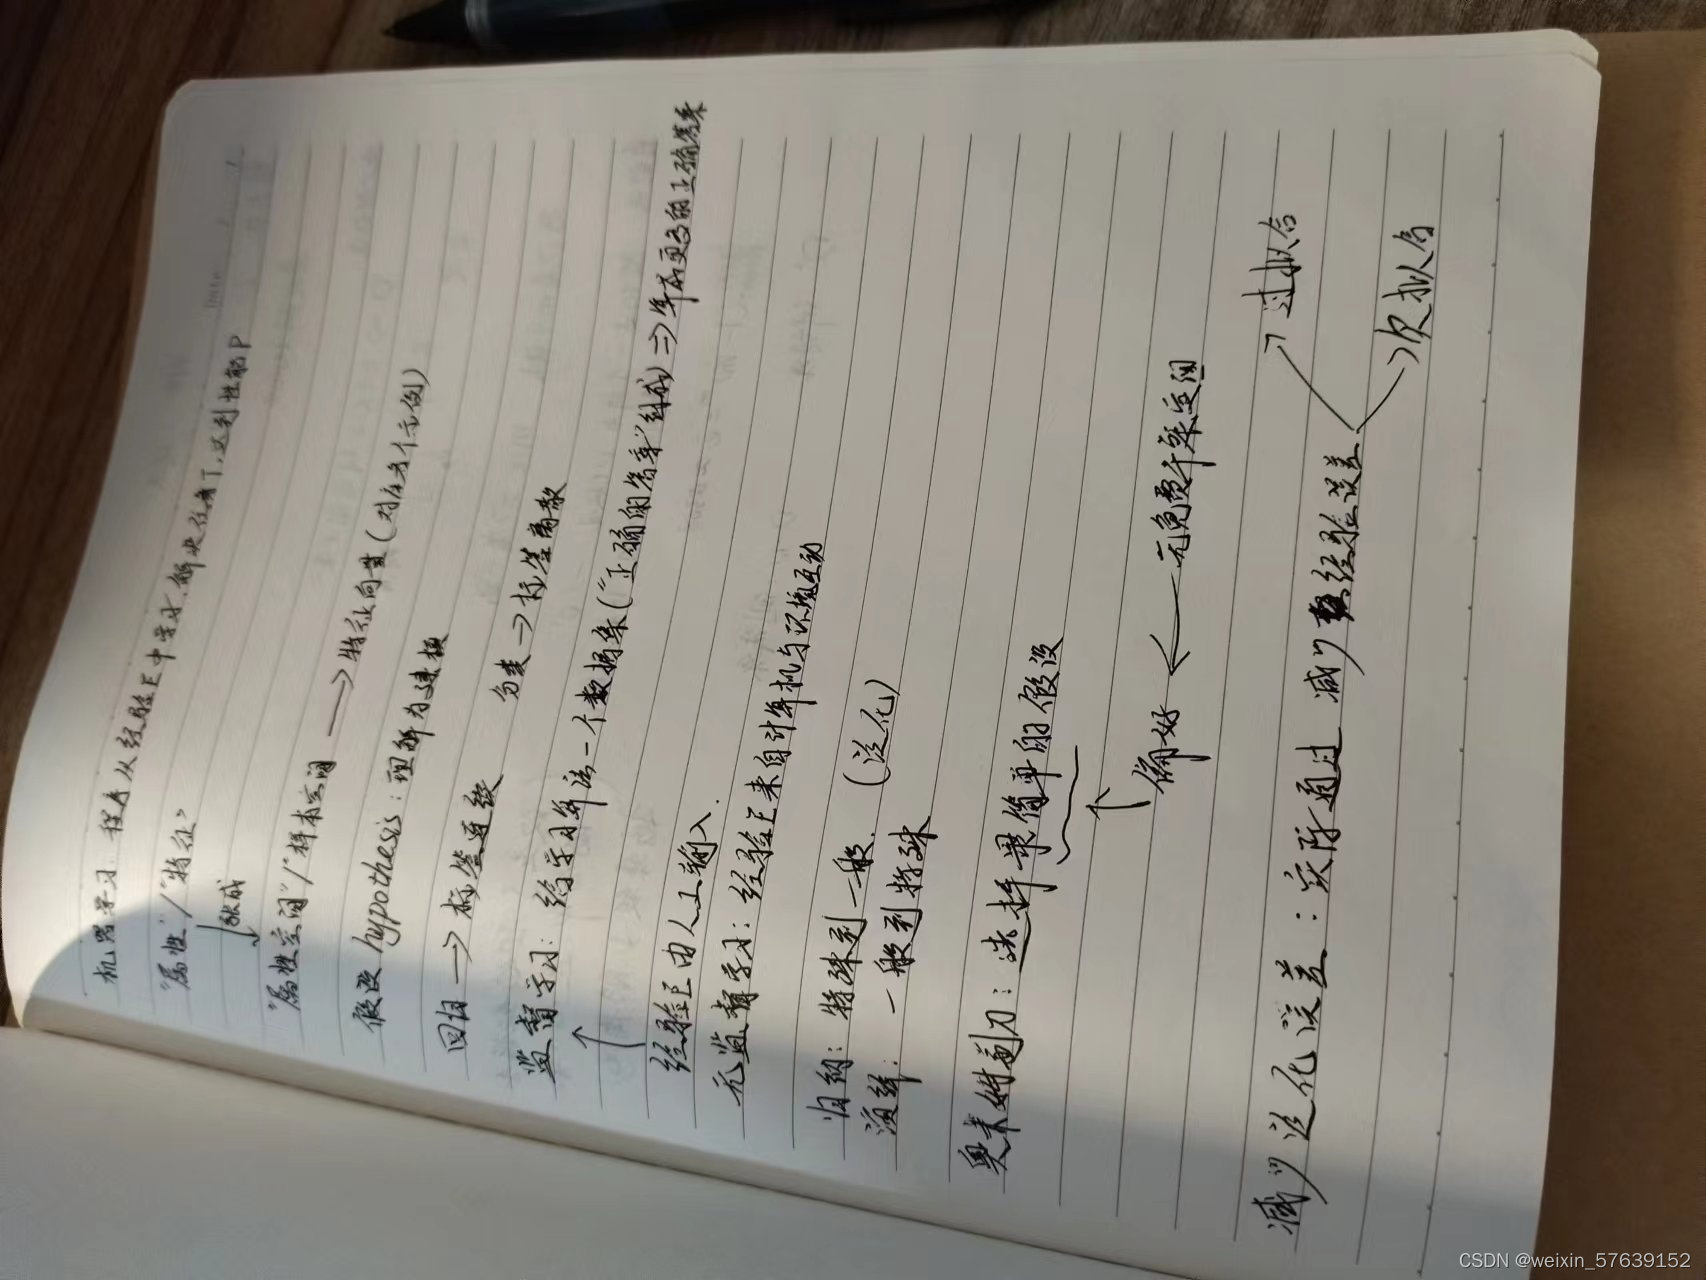 机器学习：程序从经验E中学习，解决任务T，达到性能P
"属性"/"特征"
张成
"属性空间"/"样本空间" → 特征向量(对应着个示例)
假设 hypothesis：理解为建模
回归 → 标签连续 分类 → 标签离散
监督学习：给学习算法一个数据集("正确的答案"组成) ⇒ 算出更多的正确答案
经验E由人工输入.
无监督学习：经验E来自计算机与环境互动
归纳：特殊到一般. (泛化)
演绎：一般到特殊
奥卡姆剃刀：选择最简单的假设
↑
偏好 ← 无免费午餐定理
减少泛化误差：实际通过 减少 经验误差
↗ 过拟合
→ 欠拟合
CSDN @weixin_57639152